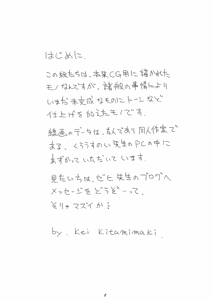 はじめに.
この絵たちは、本来CG用に描かれた
モノなんですが、諸般の事情により
いまだ未完成なものにトーンなど
仕上げを加えたモノです.
線画のデータは、なんであり同人作家で
ある、くろうすのい先生のPCの中に
あずかっていただいています.
見たい方は、ゼヒ先生のブログへ
メッセージをどうぞーって、
そりゃマズイか!
by. Kei Kitamimaki.